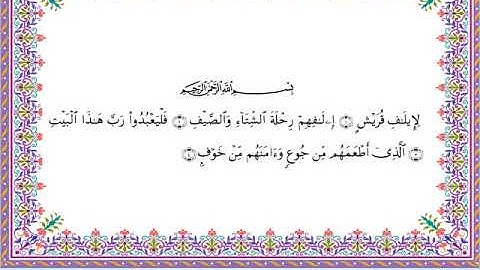 بِسْمِ اللَّهِ الرَّحْمَٰنِ الرَّحِيمِ
لِإِيلَٰفِ قُرَيْشٍ ۝ إِۦلَٰفِهِمْ رِحْلَةَ الشِّتَآءِ وَالصَّيْفِ ۝ فَلْيَعْبُدُوا۟ رَبَّ هَٰذَا الْبَيْتِ
۝ الَّذِىٓ أَطْعَمَهُم مِّن جُوعٍ وَءَامَنَهُم مِّنْ خَوْفٍۭ ۝